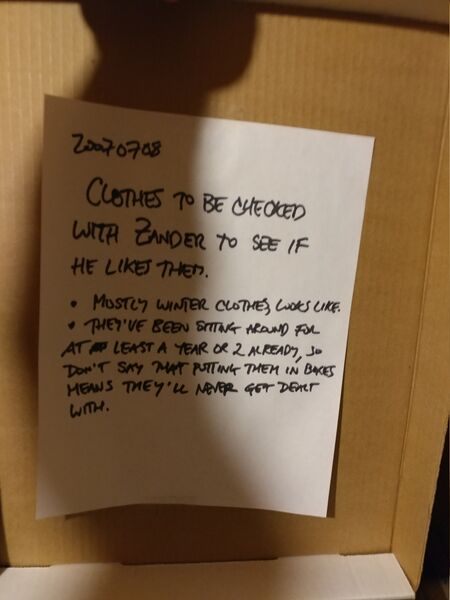 20070708
CLOTHES TO BE CHECKED
WITH ZANDER TO SEE IF
HE LIKES THEM.
• MOSTLY WINTER CLOTHES, LOOKS LIKE.
• THEY'VE BEEN SITTING AROUND FOR
AT LEAST A YEAR OR 2 ALREADY, SO
DON'T SAY THAT PUTTING THEM IN BOXES
MEANS THEY'LL NEVER GET DEALT
WITH.